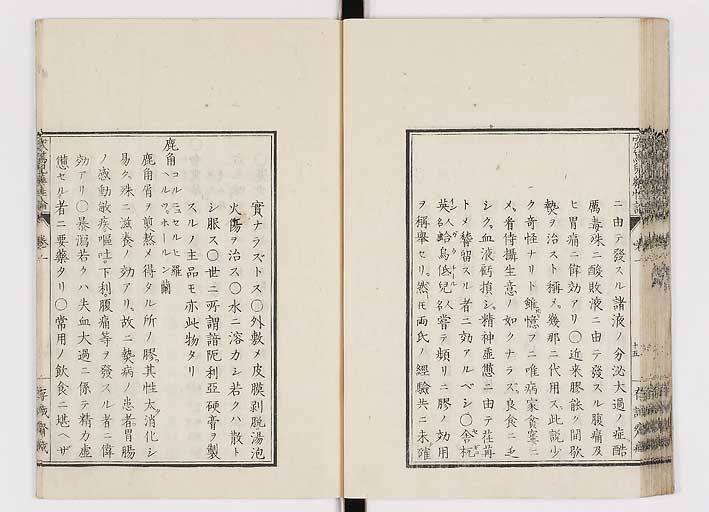 ニ由テ發スル諸液ノ分泌大過ノ症酷
厲毒殊ニ酸敗液ニ由テ發スル腹痛及
ヒ胃痛ニ偉効アリ〇近来膠能ク間歇
熱ヲ治スト稱メ幾那ニ代用ス此説少
ク奇怪ナリト雖憶フニ唯病家貧窶ニ
メ看侍攝生意ノ如クナラス良食ニ乏
シク血液虧損シ精神虚憊ニ由テ荏苒
トメ彎留スル者ニ効アルベシ〇舎杭
英人名蛤烏低兒人名嘗テ頻リニ膠ノ効用
ヲ稱擧セリ然𪜈両氏ノ經驗共ニ未確
十五
實ナラズトス〇外敷メ皮膜剥脱湯泡
火傷ヲ治ス〇水ニ溶カシ若クハ散ト
シ服ス〇世ニ所謂諳阨利亞硬膏ヲ製
スルノ主品モ亦此物タリ
鹿角コルニュセルヒ羅ヘルツホールン蘭
鹿角屑ヲ煎熬メ得タル所ノ膠其性太消化シ
易ク殊ニ滋養ノ効アリ故ニ熱病ノ患者胃腸
ノ感動敏疾嘔吐下利腹痛等ヲ發スル者ニ偉
効アリ〇暴瀉若クハ失血大過ニ係テ精力虚
憊セル者ニ要藥タリ〇常用ノ飲食ニ堪ヘザ
卷一